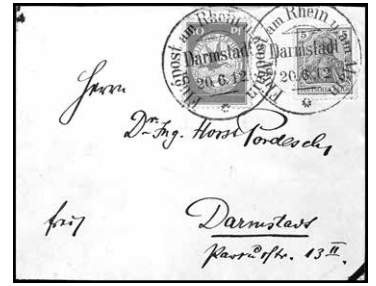 Flugpost am Rhein u. am Main
Darmstadt
20.6.12
Flugpost am Rhein u. am Main
Darmstadt
20.6.12
5
Herrn
Dr. Ing. Horst
Darmstadt
13 II.